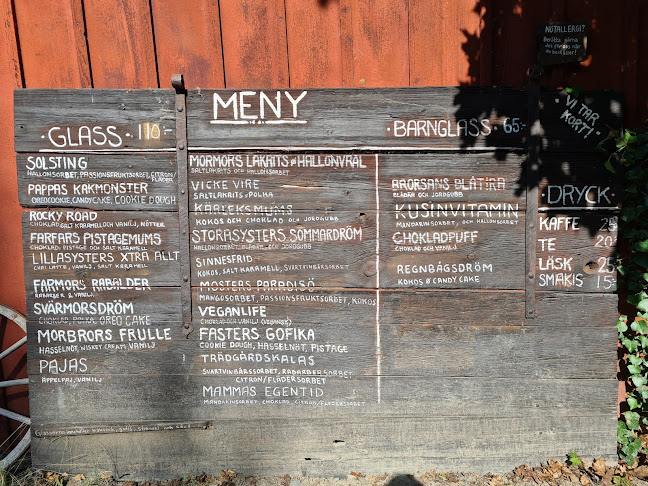 NÖTALLERGI?
MENY
VI TAR
KORT!
GLASS 110:-
SOLSTING
HALLONSORBET, PASSIONSFRUKTSORBET, CITRON/
FLÄDER
PAPPAS KAKMONSTER
OREOCOOKIE, CANDYCAKE, COOKIE DOUGH
ROCKY ROAD
CHOKLAD, SALT KARAMELL OCH VANILJ, NÖTTER
FARFARS PISTAGEMUMS
CHOKLAD, PISTAGE OCH SALT KARAMELL
LILLASYSTERS XTRA ALLT
CHAI LATTE, VANILJ, SALT KARAMELL
FARMORS RABALDER
RABARBER & VANILJ
SVÄRMORSDRÖM
CHOKLAD, POLKA, OREO CAKE
MORBRORS FRULLE
HASSELNÖT, WISKEY CREAM, VANILJ
PAJAS
ÄPPELPAJ, VANILJ
MORMORS LAKRITS & HALLONVRÅL
SALTLAKRITS OCH HALLONSORBET
VICKE VIRE
SALTLAKRITS & POLKA
KÄRLEKSMUMS
KOKOS OCH CHOKLAD OCH JORDGUBB
STORASYSTERS SOMMARDRÖM
SINNESFRID
KOKOS, SALT KARAMELL, SVARTVINBÄRSSORBET
MOSTERS PARADISÖ
MANGOSORBET, PASSIONSFRUKTSORBET, KOKOS
VEGANLIFE
CHOKLAD OCH VANILJ (VEGANSK)
FASTERS GOFIKA
COOKIE DOUGH, HASSELNÖT, PISTAGE
TRÄDGÅRDSKALAS
SVARTVINBÄRSSORBET, RABARBERSORBET
CITRON/FLÄDERSORBET
MAMMAS EGENTID
MANDARINSORBET, CHOKLAD, CITRON/FLÄDERSORBET
BARNGLASS 65:-
BRORSANS BLÅTIRA
BLÅBÄR OCH JORDGUBB
KUSINVITAMIN
MANDARINSORBET, OCH HALLONSORBET
CHOKLADPUFF
CHOKLAD OCH VANILJ
REGNBÅGSDRÖM
KOKOS & CANDY CAKE
DRYCK
KAFFE 25
TE 20
LÄSK 25
SMAKIS 15:-